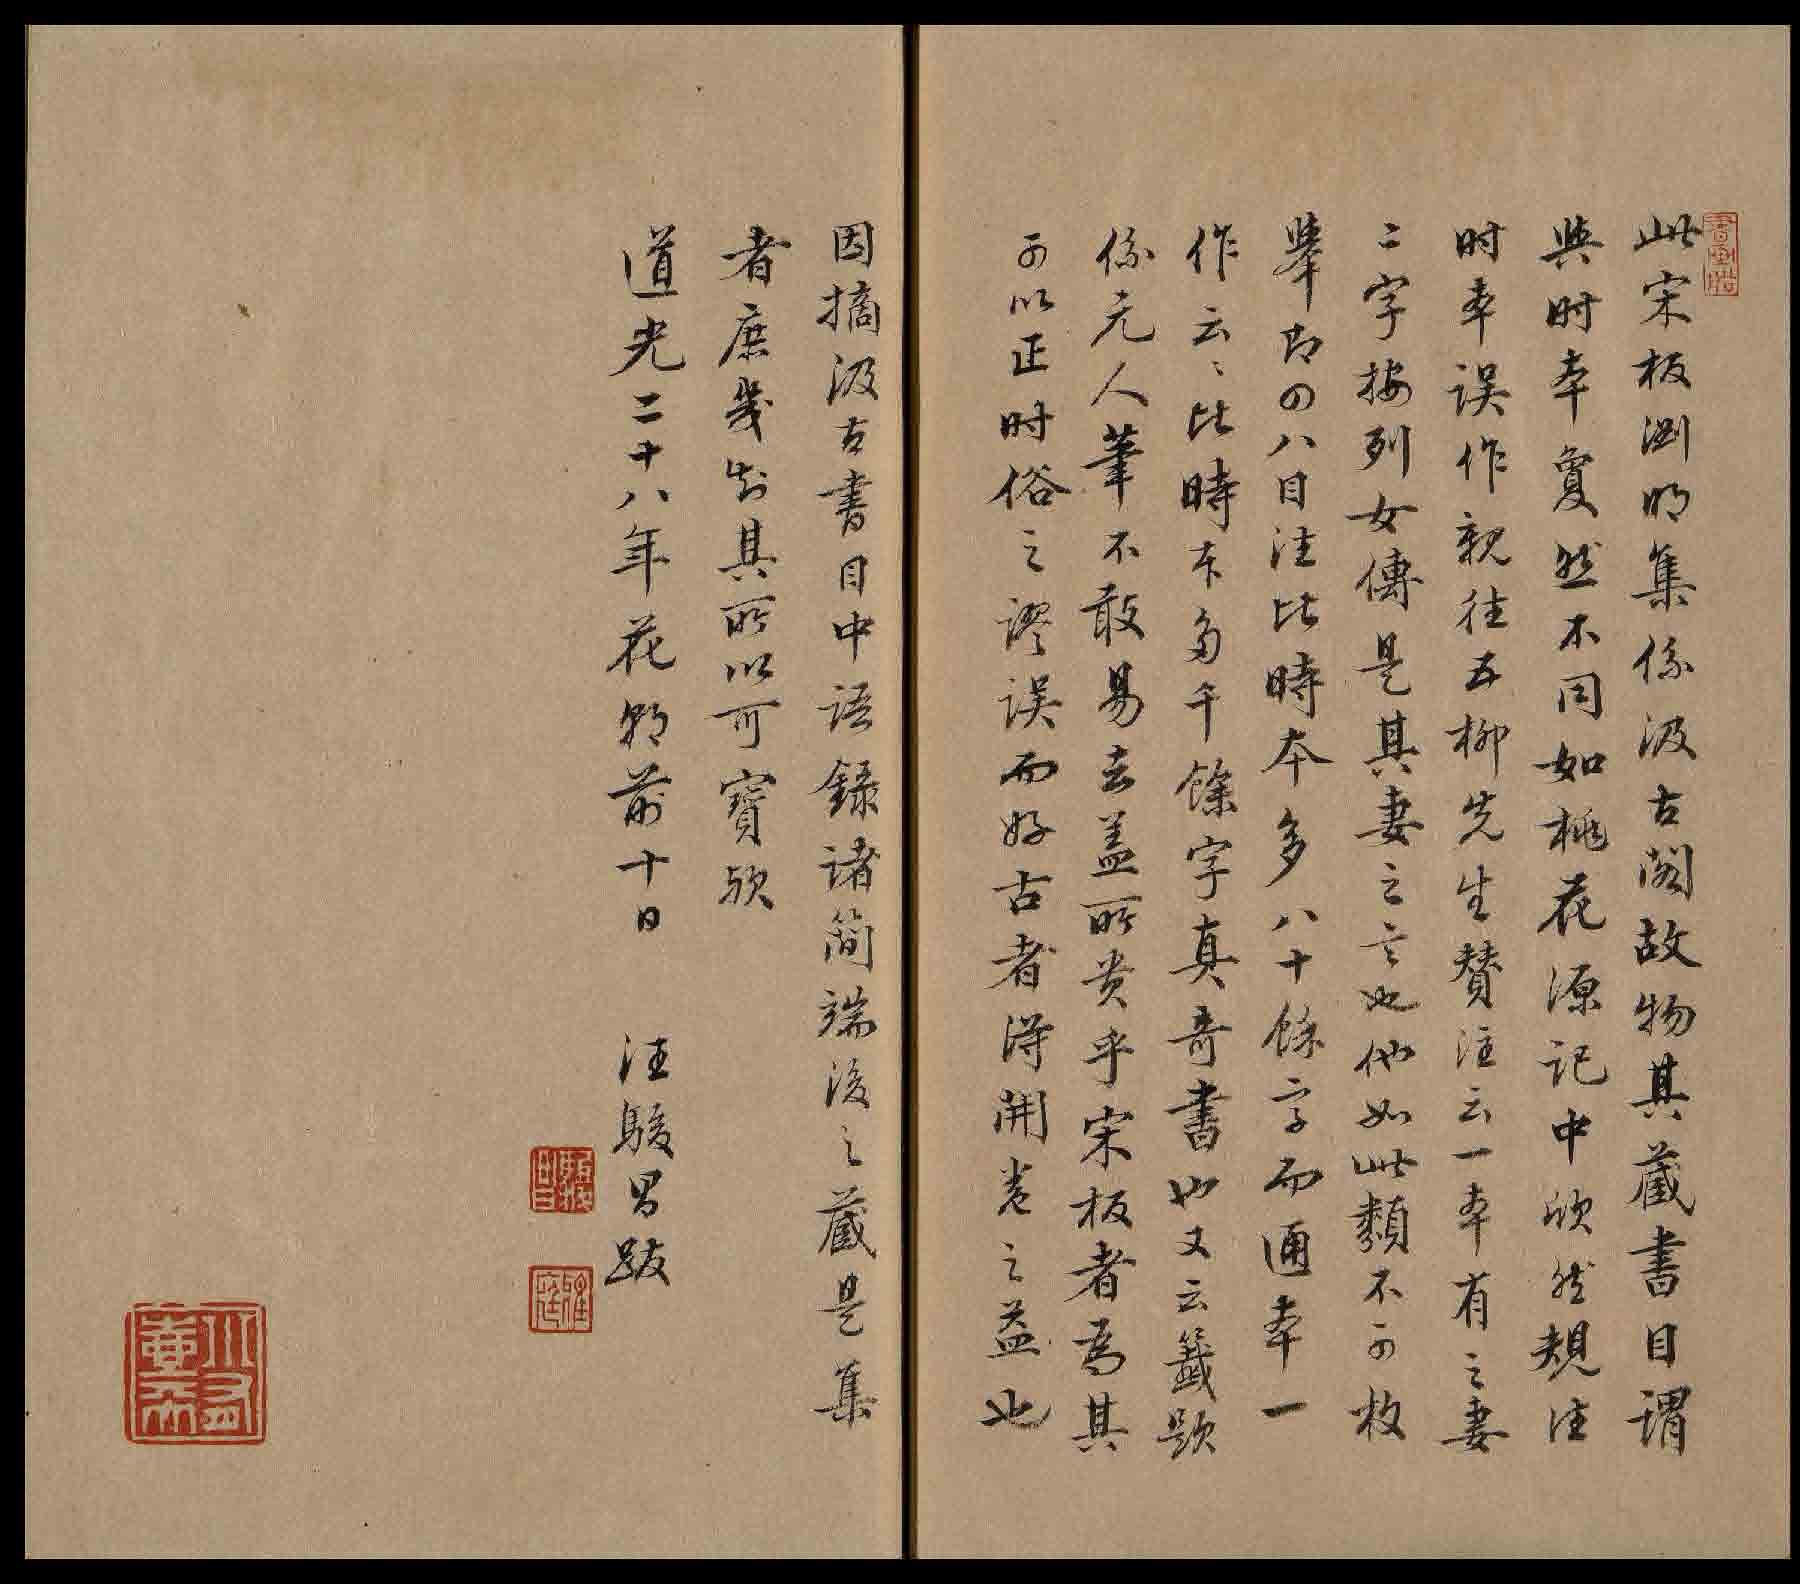 此宋板渊明集係汲古阁故物其藏書目谓
與时本夐然不同如桃花源记中欣然規注
时本误作親往五柳先生賛注云一本有之妻
二字按列女傳是其妻之言也他如此類不可枚
舉即四八目注比時本多八十餘字而通本一
作云〻比時本多千餘字真奇書也又云籖题
係元人筆不敢易去盖所贵乎宋板者為其
可以正时俗之谬误而好古者得開卷之益也
因摘汲古書目中语録诸簡端後之藏是集
者庶幾知其所以可寶欤
道光二十八年花朝前十日 汪駿昌跋